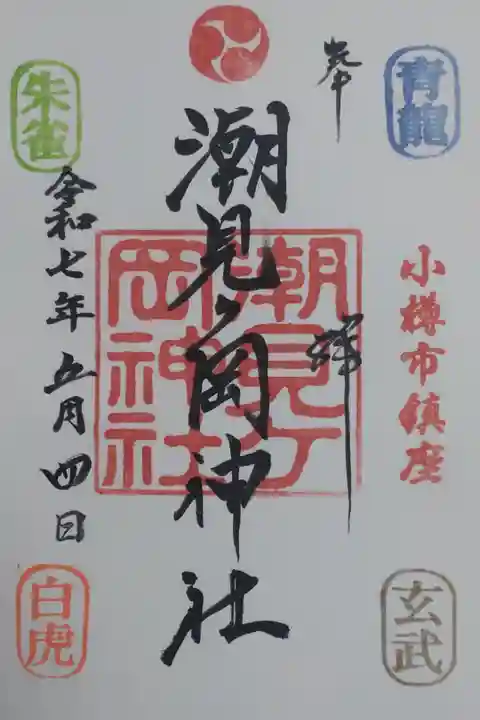 奉拝
青龍
小樽市鎮座
玄武
潮見ヶ岡神社
潮見ヶ岡神社
朱雀
令和七年五月四日
白虎